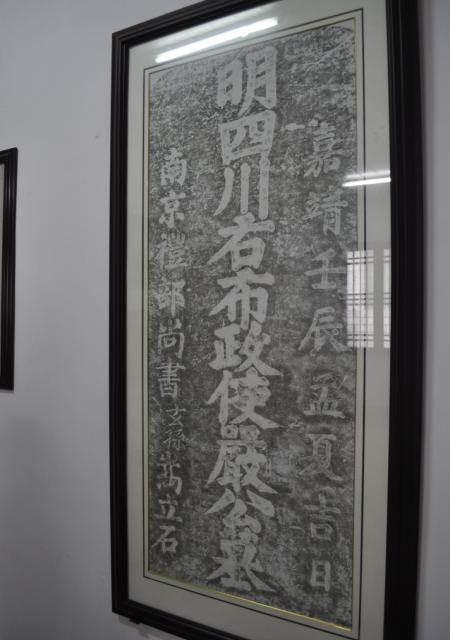 嘉靖壬辰孟夏吉日
明四川右布政使嚴公墓
南京禮部尚書玄孫嵩立石